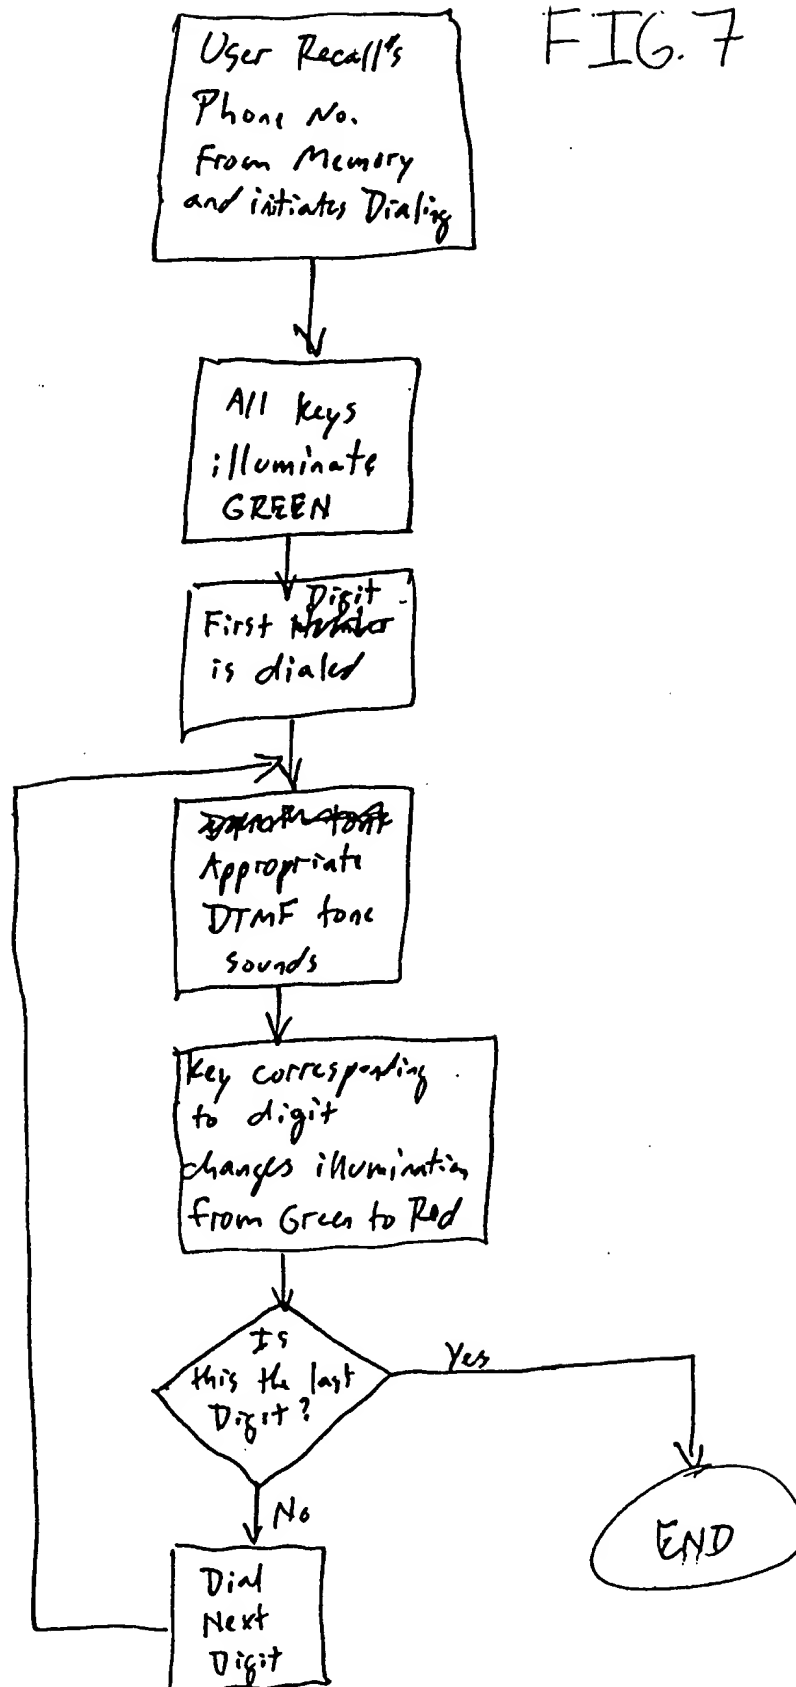 FIG. 7
User Recall's
Phone No.
From Memory
and initiates Dialing
All keys
illuminate
GREEN
Digit
First
is dialed
Appropriate
DTMF tone
sounds
Key corresponding
to digit
changes illumination
from Green to Red
Is
this the last
Digit?
Yes
No
END
Dial
Next
Digit